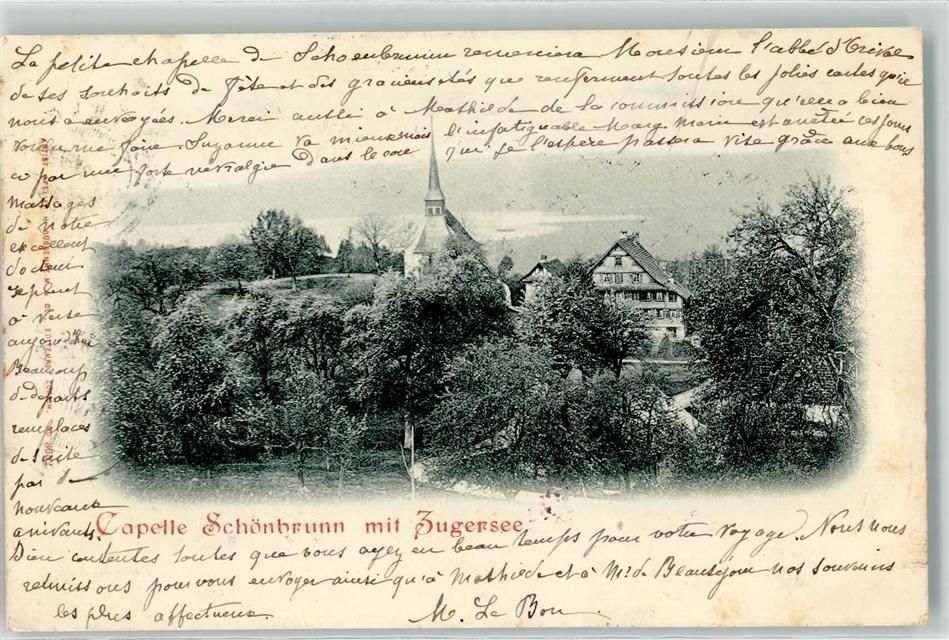 La petite chapelle de Schoenbrunn remerciera Monsieur l'abbé d'
de ses souhaits de fête et des gracieusetés que renferment toutes les jolies cartes qu'il
nous a envoyées. Merci aussi à Mathilde de la commission qu'elle a bien
voulu me faire. Suzanne va mieux mais l'infatigable Marg Marie est arrêtée ces jours
ci par une forte névralgie dans le cou que je l'espère passera vite grâce aux bons
massages
de notre
excellent
docteur
Il pleut
à verse
aujourd'hui
Beaucoup
de départs
remplacés
de suite
par de
nouveaux
arrivants.
Capelle Schönbrunn mit Zugersee
Bien contentes toutes que vous ayez eu beau temps pour votre voyage. Nous nous
réunissons pour vous envoyer ainsi qu'à Mathilde et à Mr. de Beauséjour nos souvenirs
les plus affectueux. M. Le Bon